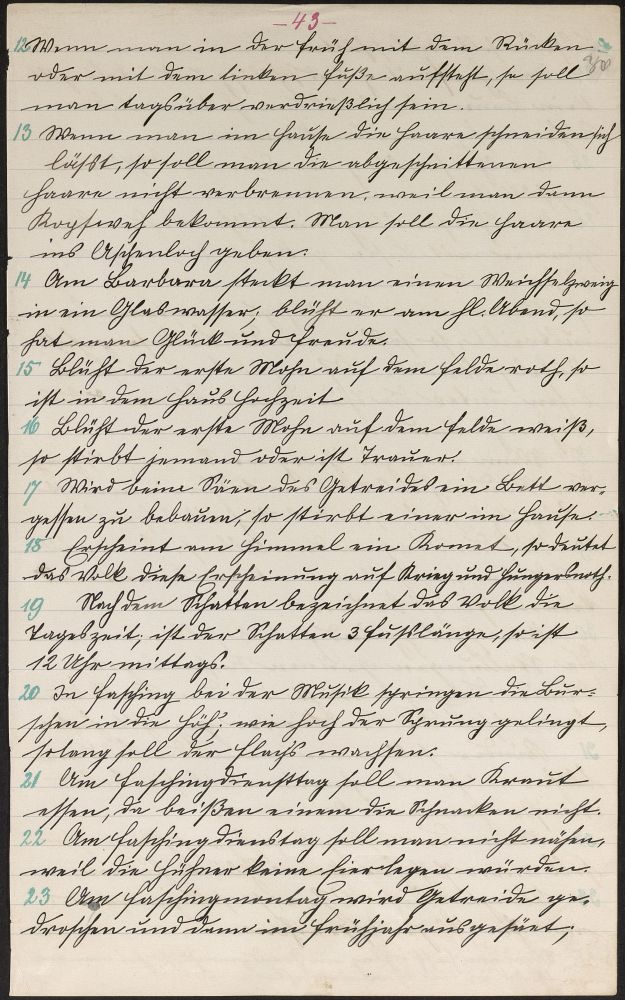 -43-
12 Wenn man in der früh mit dem Rücken
30
oder mit dem linken Fuße aufsteht, so soll
man tagsüber verdrießlich sein.
13 Wenn man im Hause die Haare schneiden sich
läßt, so soll man die abgeschnittenen
Haare nicht verbrennen, weil man dann
Kopfweh bekommt. Man soll die Haare
ins Aschenloch geben.
14 Am Barbara steckt man einen Weichselzweig
in ein Glas wasser; blüht er am hl. Abend, so
hat man Glück und Freude.
15 Blüht der erste Mohn auf dem Felde roth, so
ist in dem Haus Hochzeit
16 Blüht der erste Mohn auf dem Felde weiß,
so stirbt jemand oder ist Trauer.
17 Wird beim Säen des Getreides ein Bett ver-
gessen zu bebauen, so stirbt einer im Hause.
18 Erscheint am Himmel ein Komet, so deutet
das Volk diese Erscheinung auf Krieg und Hungersnoth.
19 Nach dem Schatten bezeichnet das Volk die
Tageszeit; ist der Schatten 3 Fusslänge, so ist
12 Uhr mittags.
20 In Fasching bei der Musik springen die Bur-
schen in die Höh; wie hoch der Sprung gelingt,
solang soll der Flachs wachsen.
21 Am Faschingdiensttag soll man Kraut
essen, da beißen einem die Schnacken nicht.
22 Am Faschingdienstag soll man nicht nähen,
weil die Hühner keine Eier legen würden.
23 Am Faschingmontag wird Getreide ge-
droschen und dann im Frühjahr ausgesäet;